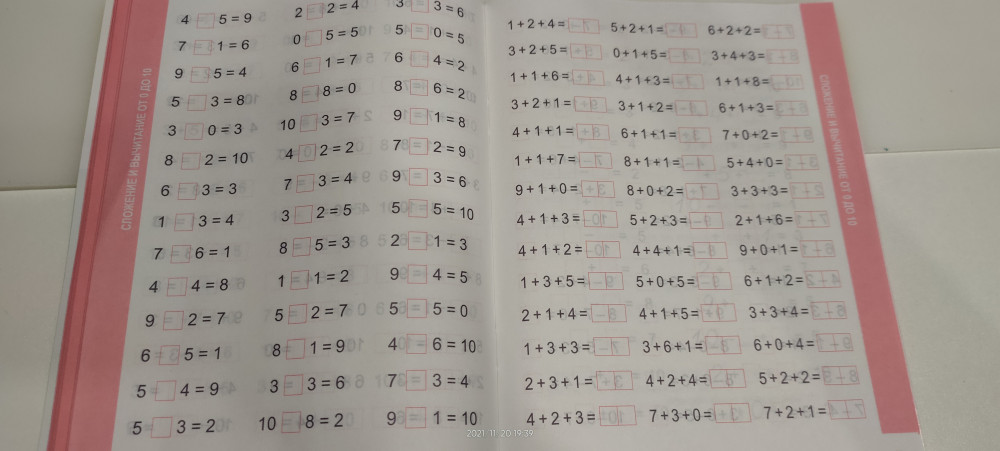 СЛОЖЕНИЕ И ВЫЧИТАНИЕ ОТ 0 ДО 10
4 □ 5 = 9 2 □ 2 = 4 3 □ 3 = 6
7 □ 1 = 6 0 □ 5 = 5 5 □ 0 = 5
9 □ 5 = 4 6 □ 1 = 7 6 □ 4 = 2
5 □ 3 = 8 8 □ 8 = 0 8 □ 6 = 2
3 □ 0 = 3 10 □ 3 = 7 9 □ 1 = 8
8 □ 2 = 10 4 □ 2 = 2 7 □ 2 = 9
6 □ 3 = 3 7 □ 3 = 4 9 □ 3 = 6
1 □ 3 = 4 3 □ 2 = 5 5 □ 5 = 10
7 □ 6 = 1 8 □ 5 = 3 2 □ 1 = 3
4 □ 4 = 8 1 □ 1 = 2 9 □ 4 = 5
9 □ 2 = 7 5 □ 2 = 7 5 □ 5 = 0
6 □ 5 = 1 8 □ 1 = 9 4 □ 6 = 10
5 □ 4 = 9 3 □ 3 = 6 7 □ 3 = 4
5 □ 3 = 2 10 □ 8 = 2 9 □ 1 = 10
1 + 2 + 4 = 5 + 2 + 1 = 6 + 2 + 2 =
3 + 2 + 5 = 0 + 1 + 5 = 3 + 4 + 3 =
1 + 1 + 6 = 4 + 1 + 3 = 1 + 1 + 8 =
3 + 2 + 1 = 3 + 1 + 2 = 6 + 1 + 3 =
4 + 1 + 1 = 6 + 1 + 1 = 7 + 0 + 2 =
1 + 1 + 7 = 8 + 1 + 1 = 5 + 4 + 0 =
9 + 1 + 0 = 8 + 0 + 2 = 3 + 3 + 3 =
4 + 1 + 3 = 5 + 2 + 3 = 2 + 1 + 6 =
4 + 1 + 2 = 4 + 4 + 1 = 9 + 0 + 1 =
1 + 3 + 5 = 5 + 0 + 5 = 6 + 1 + 2 =
2 + 1 + 4 = 4 + 1 + 5 = 3 + 3 + 4 =
1 + 3 + 3 = 3 + 6 + 1 = 6 + 0 + 4 =
2 + 3 + 1 = 4 + 2 + 4 = 5 + 2 + 2 =
4 + 2 + 3 = 7 + 3 + 0 = 7 + 2 + 1 =
СЛОЖЕНИЕ И ВЫЧИТАНИЕ ОТ 0 ДО 10
2021-11-20 19:39